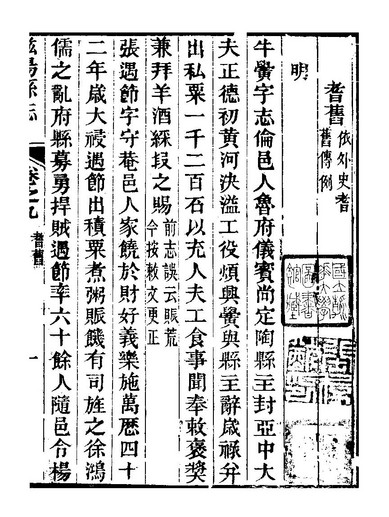 耆舊依外史耆舊傳例
明
牛黌字志倫邑人魯府儀賓尚定陶縣主封亞中大
夫正德初黃河決溢工役煩興黌與縣主辭歲祿弁
出私粟一千二百石以充人夫工食事聞奉敕褒獎
兼拜羊酒綵叚之賜前志誤云賑荒今按敕文更正
張遇節字守菴邑人家饒於財好義樂施萬歷四十
二年歲大祲遇節出積粟煮粥賑饑有司旌之徐鴻
儒之亂府縣募勇捍賊遇節率六十餘人隨邑令楊
滋陽縣志
卷之九
耆舊
一